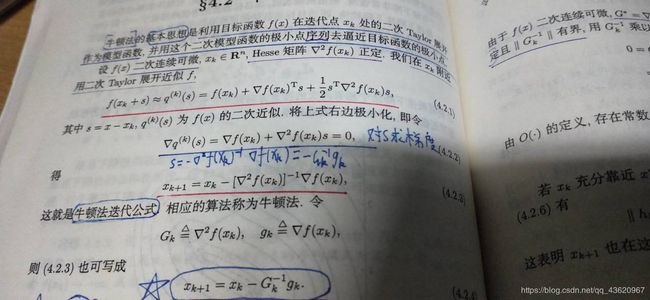 §4.2
牛顿法的基本思想是利用目标函数 f(x) 在迭代点 x_k 处的二次 Taylor 展开
作为模型函数, 并用这个二次模型函数的极小点序列去逼近目标函数的极小点.
设 f(x) 二次连续可微, x_k ∈ R^n, Hesse 矩阵 ∇²f(x_k) 正定. 我们在 x_k 附近
用二次 Taylor 展开近似 f,
f(x_k + s) ≈ q^(k)(s) = f(x_k) + ∇f(x_k)^T s + 1/2 s^T ∇²f(x_k)s, (4.2.1)
其中 s = x − x_k, q^(k)(s) 为 f(x) 的二次近似. 将上式右边极小化, 即令
∇q^(k)(s) = ∇f(x_k) + ∇²f(x_k)s = 0, 对s求梯度 (4.2.2)
s = -∇²f(x_k)^-1 ∇f(x_k) = -G_k^-1 g_k
得
x_{k+1} = x_k − [∇²f(x_k)]^{-1}∇f(x_k), (4.2.3)
这就是牛顿法迭代公式. 相应的算法称为牛顿法. 令
G_k ≜ ∇²f(x_k), g_k ≜ ∇f(x_k),
则 (4.2.3) 也可写成
x_{k+1} = x_k − G_k^{-1} g_k. (4.2.4)
由于 f(x) 二次连续可微, G* = ∇
定且 ‖ G_k^{-1} ‖ 有界, 用 G_k^{-1} 乘以
0 =
由 O(·) 的定义, 存在常数
若 x_k 充分靠近 x
(4.2.6) 有
‖ h
这表明 x_{k+1} 也在这
https://blog.csdn.net/qq_43620967